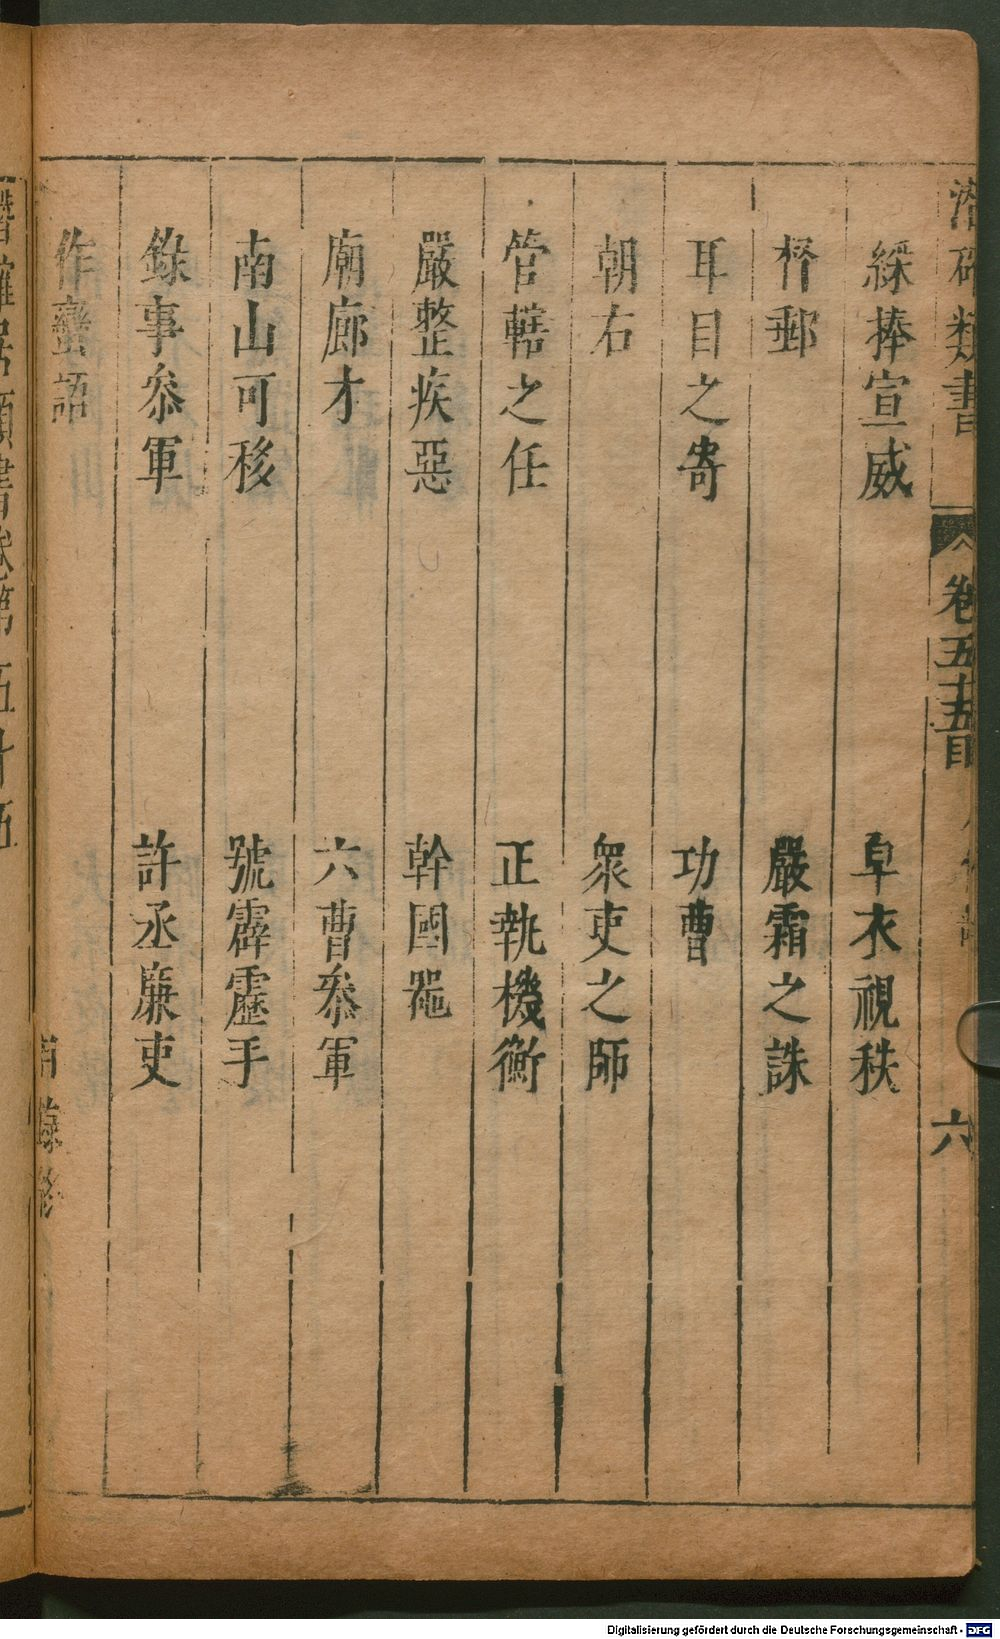 類書
卷五十五目
六
綵捧宣威
皁衣視秩
督郵
嚴霜之誅
耳目之寄
功曹
朝右
衆吏之師
管轄之任
正執機衡
嚴整疾惡
幹國噐
廟廊才
六曹叅軍
南山可移
號霹靂手
錄事叅軍
許丞廉吏
作蠻語
Digitalisierung gefördert durch die Deutsche Forschungsgemeinschaft - DFG